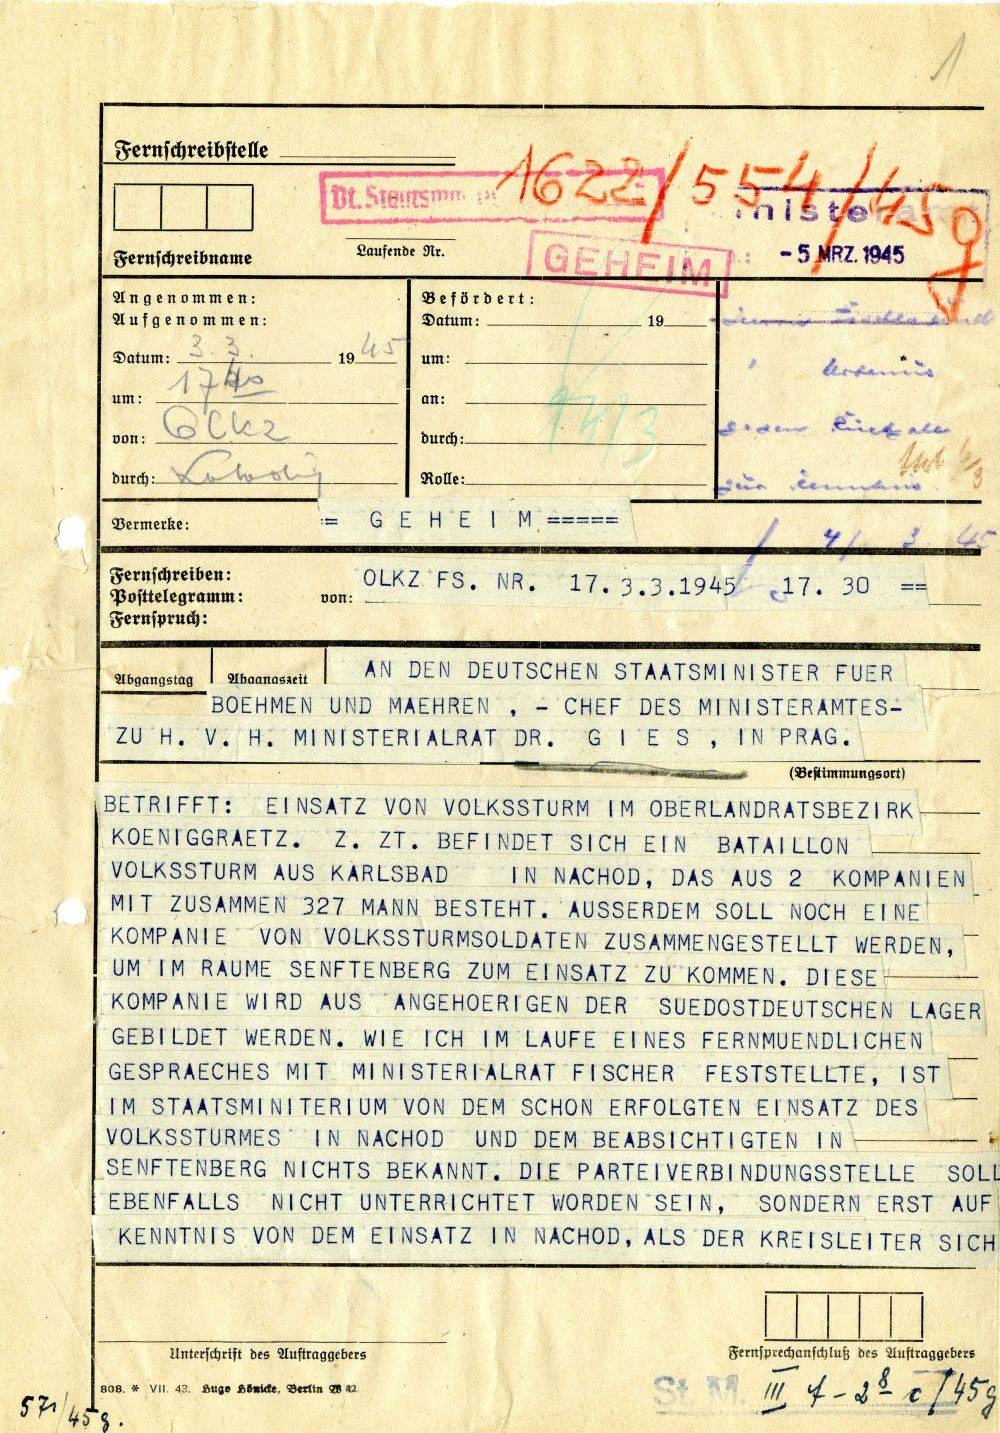 1
Fernschreibstelle
1622/554/45g
Dt. Staatsmin
Ministeramt
Fernschreibname
Laufende Nr.
GEHEIM
- 5 MRZ. 1945
Angenommen:
Aufgenommen:
Datum: 3.3. 1945
um: 17 40
von: OLKZ
durch:
Befördert:
Datum: 19
um:
an:
durch:
Rolle:
14/3
6/3
Vermerke: = G E H E I M =====
4/ 3 45
Fernschreiben:
Posttelegramm:
Fernspruch:
von: OLKZ FS. NR. 17. 3.3.1945 17. 30 ==
Abgangstag
Abgangszeit
AN DEN DEUTSCHEN STAATSMINISTER FUER
BOEHMEN UND MAEHREN , - CHEF DES MINISTERAMTES-
ZU H. V. H. MINISTERIALRAT DR. G I E S , IN PRAG.
(Bestimmungsort)
BETRIFFT: EINSATZ VON VOLKSSTURM IM OBERLANDRATSBEZIRK
KOENIGGRAETZ. Z. ZT. BEFINDET SICH EIN BATAILLON
VOLKSSTURM AUS KARLSBAD IN NACHOD, DAS AUS 2 KOMPANIEN
MIT ZUSAMMEN 327 MANN BESTEHT. AUSSERDEM SOLL NOCH EINE
KOMPANIE VON VOLKSSTURMSOLDATEN ZUSAMMENGESTELLT WERDEN,
UM IM RAUME SENFTENBERG ZUM EINSATZ ZU KOMMEN. DIESE
KOMPANIE WIRD AUS ANGEHOERIGEN DER SUEDOSTDEUTSCHEN LAGER
GEBILDET WERDEN. WIE ICH IM LAUFE EINES FERNMUENDLICHEN
GESPRAECHES MIT MINISTERIALRAT FISCHER FESTSTELLTE, IST
IM STAATSMINITERIUM VON DEM SCHON ERFOLGTEN EINSATZ DES
VOLKSSTURMES IN NACHOD UND DEM BEABSICHTIGTEN IN
SENFTENBERG NICHTS BEKANNT. DIE PARTEIVERBINDUNGSSTELLE SOLL
EBENFALLS NICHT UNTERRICHTET WORDEN SEIN, SONDERN ERST AUF
KENNTNIS VON DEM EINSATZ IN NACHOD, ALS DER KREISLEITER SICH
Unterschrift des Auftraggebers
Fernsprechanschluß des Auftraggebers
808. * VII. 43. Hugo Hönicke, Berlin
St. M. III f - 28 c/45g
571/45g.